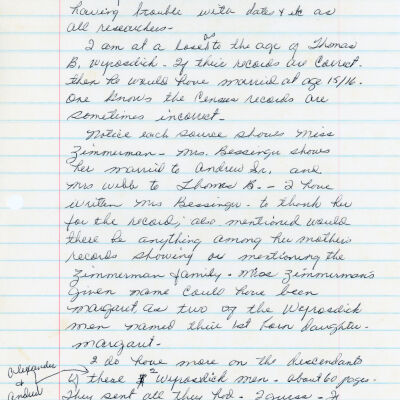 having trouble with dates & etc as
all researchers -
I am at a loss as to the age of Thomas
B. Wyrosdick - If their records are correct.
then he would have married at age 15/16.
One knows the Census records are
sometimes incorrect -
Notice each source shows Miss
Zimmerman - Mrs. Bessinger shows
her married to Andrew Sr. and
Mrs Webb to Thomas B. - I have
written Mrs Bessinger - to thank her
for the record; also mentioned would
there be anything among her mothers
records showing or mentioning the
Zimmerman family. Miss Zimmerman's
given name could have been
Margaret, as two of the Wyrosdick
men named their 1st born daughter -
Margaret -
I do have more on the descendants
of these 2 Wyrosdick men - about 60 pages.
Alexander
&
Andrew
They sent all they had -